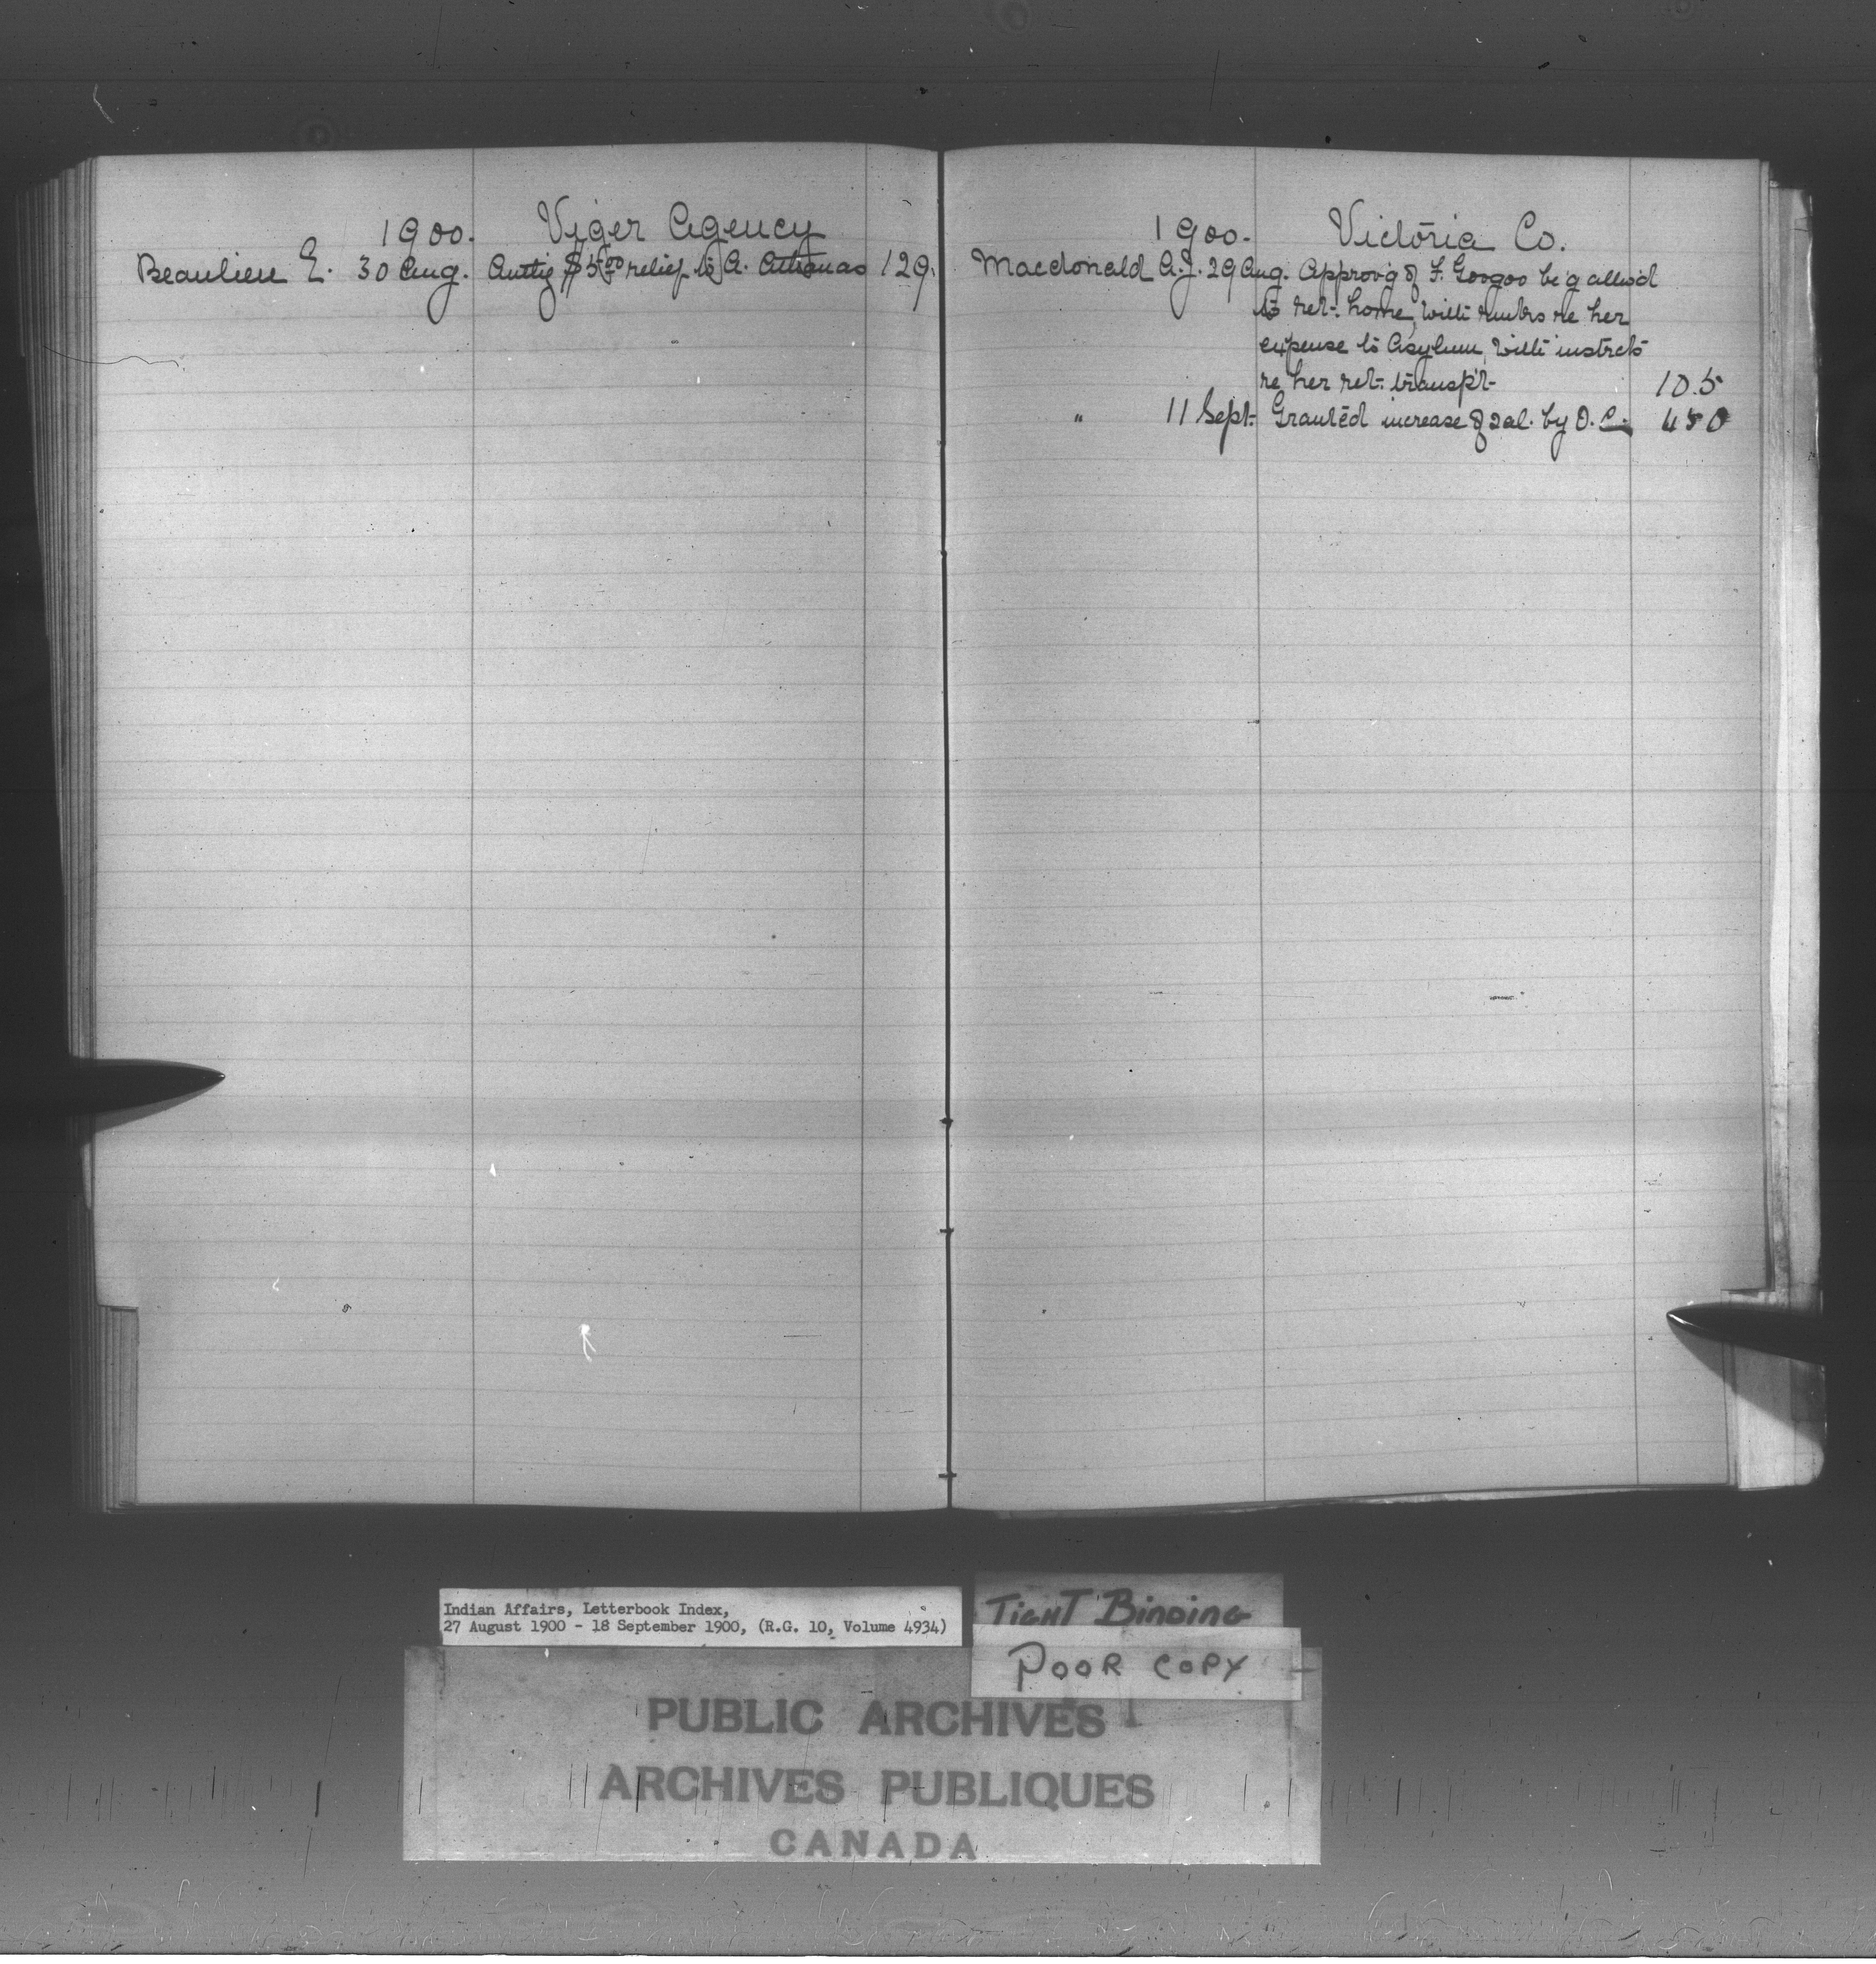 1900. Viger Agency
Beaulieu E. 30 Aug. Authg $5.00 relief to A. Athanas 129.
1900. Victoria Co.
Macdonald A.J. 29 Aug. Approv'g of F. Googoo be'g allow'd
to ret. home, with remks re her
expense to Asylum, with instrcts
re her ret. transp't. 105
" 11 Sept. Granted increase of sal. by O.C. 450
Indian Affairs, Letterbook Index,
27 August 1900 - 18 September 1900, (R.G. 10, Volume 4934)
TIGHT BINDING
POOR COPY
PUBLIC ARCHIVES
ARCHIVES PUBLIQUES
CANADA